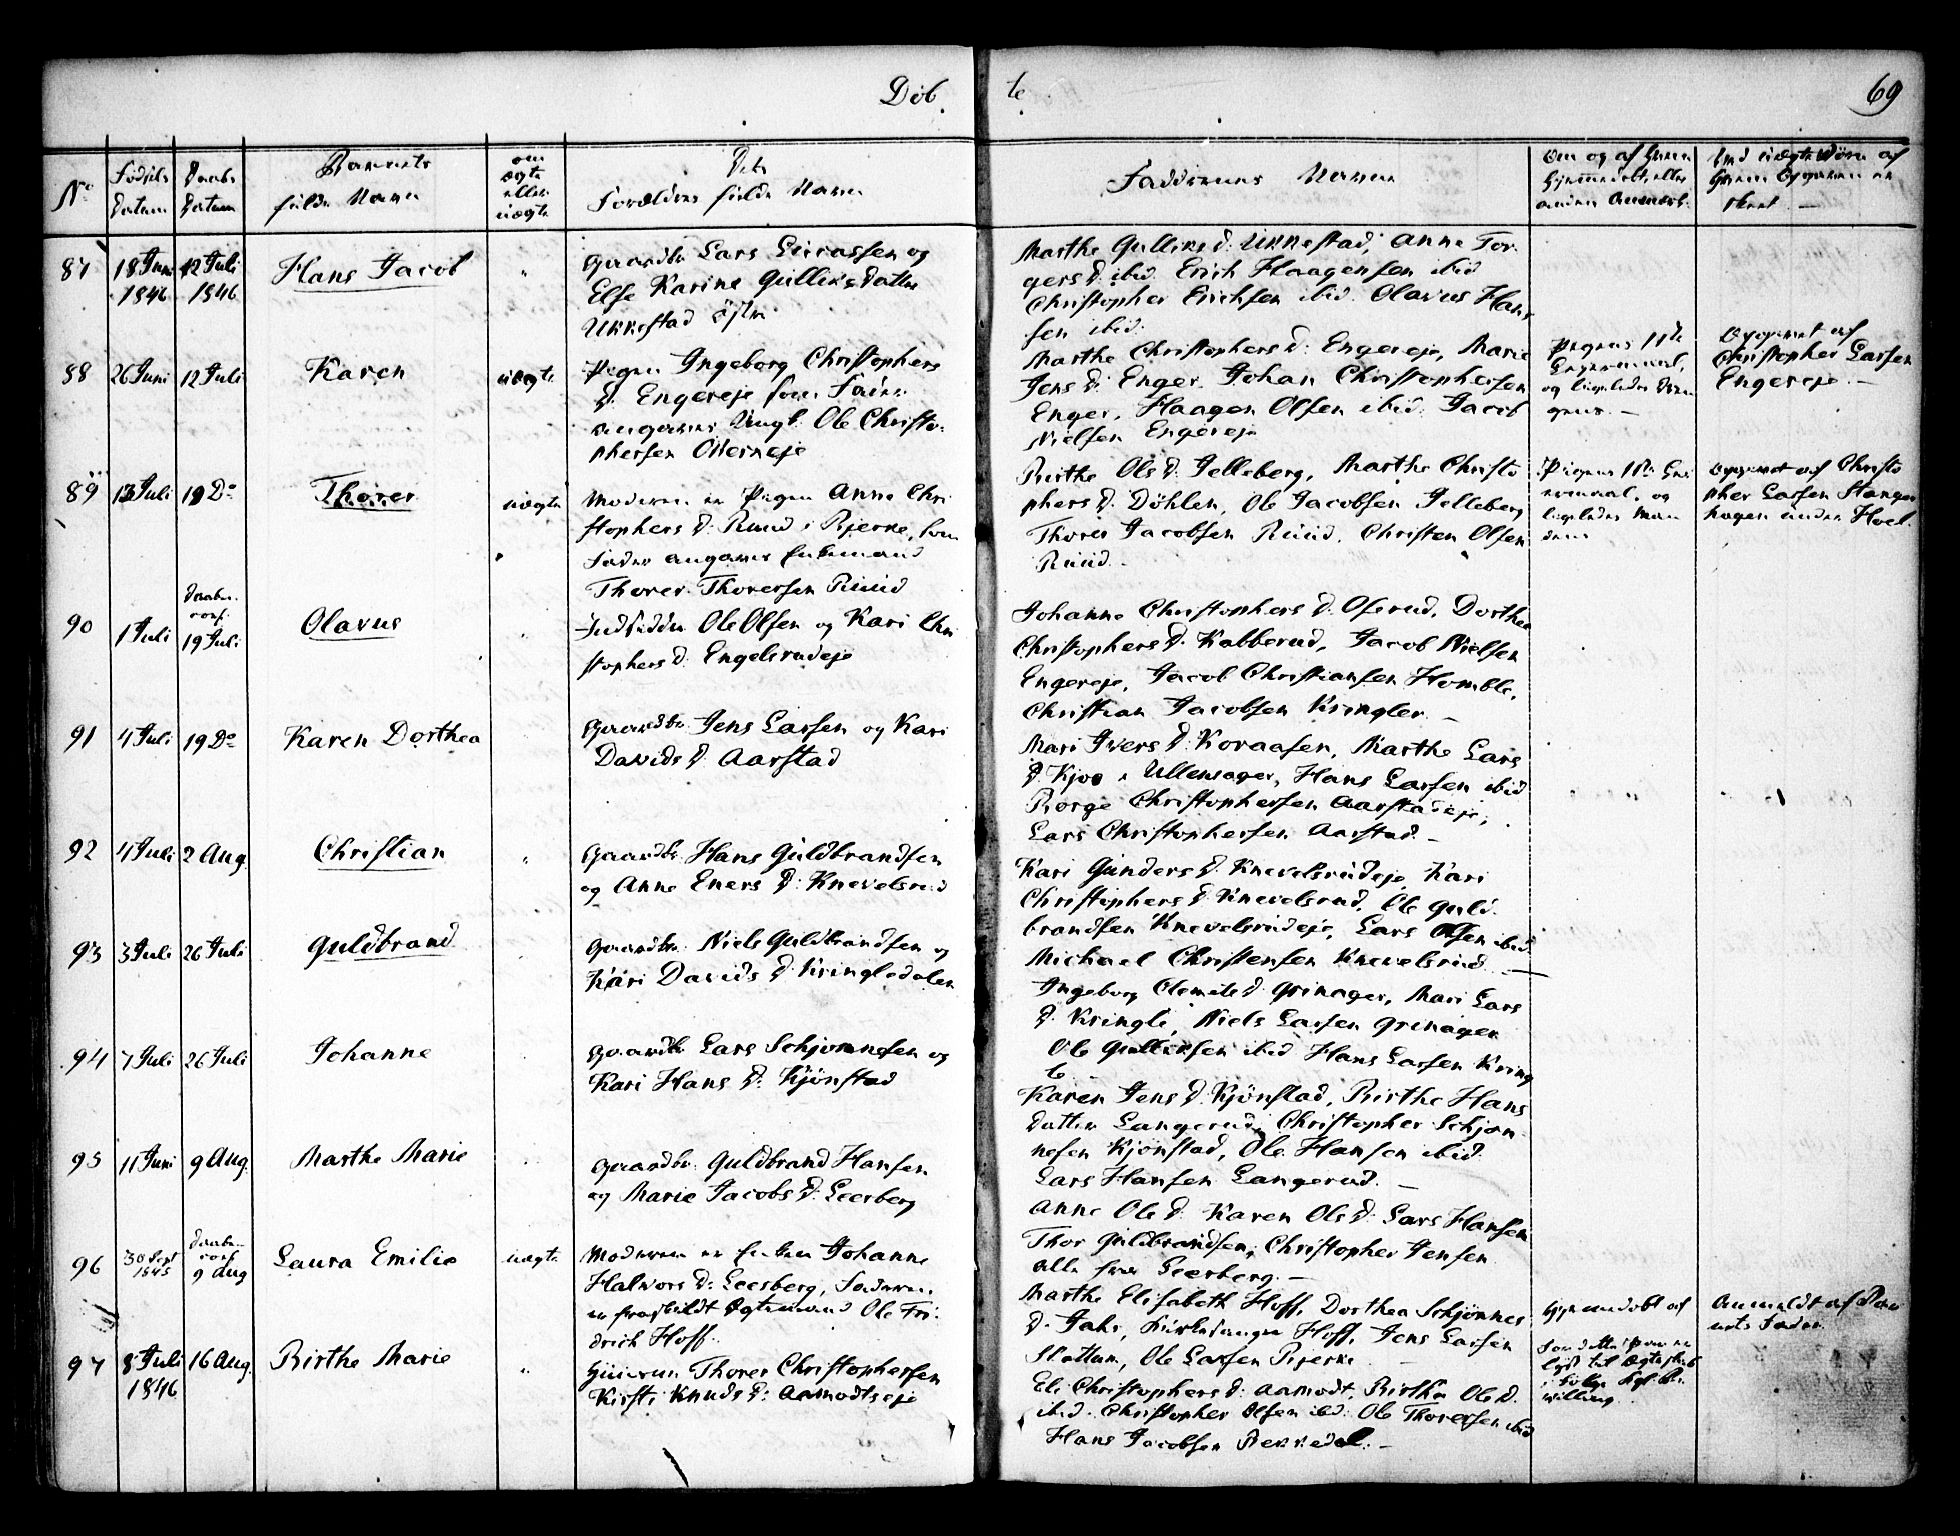 Døb te 69
No
Fødsels Datum
Daabs Datum
Barnets fulde Navn
om ægte eller uægte
Dets Forældres fulde Navn
Faddernes Navne
Om og af hvem hjemmedøbt, eller anden Anmærk.
87 18 Juni 1846 12 Juli 1846 Hans Jacob "
Gaardbr Lars Livassen og
Else Karine Gulliksdatter
Ukkestad
Marthe Gulliks d: Ukkestad, Anne Tor-
gers d: ibid. Erich Haagensen ibid
Christopher Erichsen ibid. Olavus Han-
sen ibid.
88 26 Juni 12 Juli Karen uægte
Pigen Ingeborg Christophers
d: Engereje som Fader
angaves Ungk: Ole Christo-
phersen
Marthe Christophers d: Engereje, Marie
Jens d: Enger. Johan Christophersen
Enger, Haagen Olsen ibid. Jacob
Nielsen Engereje
Pigens 1ste
og ligeledes
Opgivet af
Christopher Larsen
Engereje. —
89 13 Juli 19 Do Thorer uægte
Moderen er Pigen Anne Chri
stophers d: Ruud i Bjerke, som
Fader angaves Enkemand
Thorer Thorersen Ruud
Birthe Ols d: Jelleberg, Marthe Christo
phers d: Døhlen, Ole Jacobsen Jelleberg
Thorer Jacobsen Ruud, Christen Olsen
Ruud.
Pigens 1ste
og
ligeledes Man
dens
Opgivet af Christo
pher Larsen Stangen
hagen under Hoel
90 1 Juli Daabs. conf. 19 Juli Olavus "
Indsidder Ole Olsen og Kari Chri
stophers d: Engelsrudeje
Johanne Christophers d: Oserud, Dorthea
Christophers d: Kabberud, Jacob Nielsen
Engereje, Jacob Christiansen Homble,
Christian Jacobsen Kringler. —
91 4 Juli 19 Do Karen Dorthea
Gaardbr. Jens Larsen og Kari
Davids d: Aarstad
Mari Ivers d: Koraasen, Marthe Lars
d: Kjos i Ullensager, Hans Larsen ibid
Børge Christophersen Aarstadeje,
Lars Christophersen Aarstad. —
92 4 Juli 2 Aug. Christian "
Gaardbr. Hans Guldbrandsen
og Anne Eners d: Knevelsrud
Kari Gunders d: Knevelsrudeje Kari
Christophers d: Knevelsrud, Ole Guld-
brandsen Knevelsrudeje, Lars Olsen ibid
Michael Christensen Knevelsrud. —
93 3 Juli 26 Juli Guldbrand
Gaardbr. Niels Guldbrandsen og
Kari Davids d: Kringledalen
Ingeborg Clemets d: Grinager, Mari Lars
d: Kringle, Niels Larsen Grinager
Ole Gulliksen ibid Hans Larsen Kring
le
94 7 Juli 26 Juli Johanne
Gaardbr Lars Schjønnesen og
Kari Hans d: Kjønstad
Karen Jens d: Kjønstad, Birthe Hans
datter Langerud, Christopher Schjøn-
nesen Kjønstad, Ole Hansen ibid.
Lars Hansen Langerud. —
95 11 Juni 9 Aug. Marthe Marie
Gaardbr. Guldbrand Hansen
og Marie Jacobs d: Leerberg
Anne Ols d: Karen Ols d: Lars Hansen
Thor Guldbrandsen, Christopher Jensen
alle fra Leerberg. —
96 30 Sept 1845 Daabs- conf 9 Aug Laura Emilie uægte
Moderen er Enken Johanne
Halvors d: Leesberg, Faderen
er fraskildt Ægtemand Ole Fri-
drich Hoff.
Marthe Elisabeth Hoff, Dorthea Schjønnes
d: Jahr, Kirkesanger Hoff, Jens Larsen
Slattum, Ole Larsen Bjerke
Hjemmedøbt af
Anmeldt af Bar-
nets Fader.
97 8 Juli 1846 16 Aug. Birthe Marie "
Huusm Thorer Christophersen
Kirsti Knuds d: Aamodtseje
Eli Christophers d: Aamodt, Birthe Ols d.
ibid. Christopher Olsen ibid: Ole Thorersen ibid
Hans Jacobsen Bekkedal. —